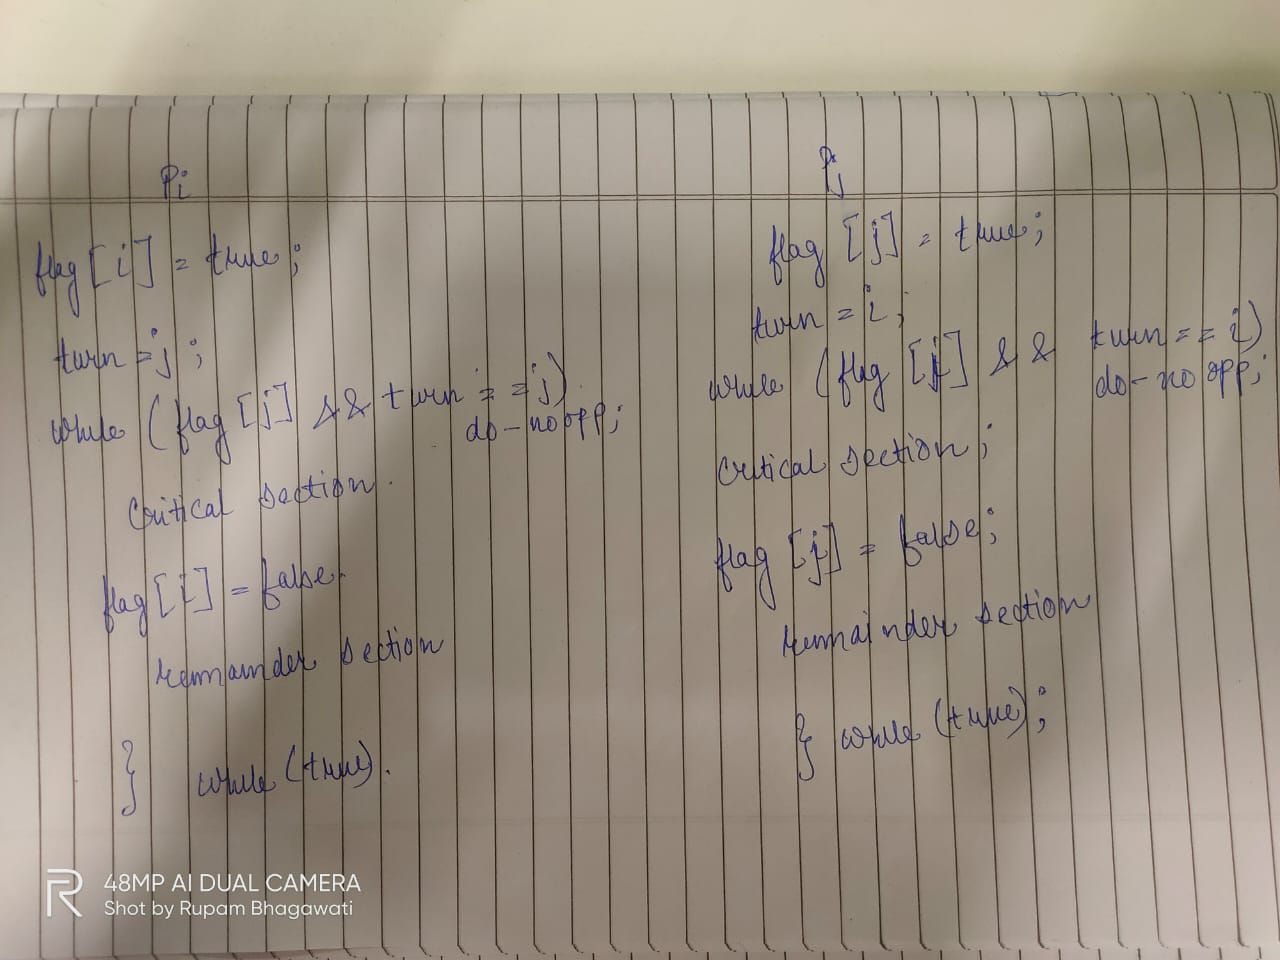 Pi
flag [i] = true;
turn = j;
while (flag [j] && turn == j)
do-no opp;
Critical section.
flag [i] = false.
remainder section
} while (true).
Pj
flag [j] = true;
turn = i;
while (flag [j] && turn == i)
do-no opp;
Critical section;
flag [j] = false;
remainder section
} while (true);
48MP AI DUAL CAMERA
Shot by Rupam Bhagawati